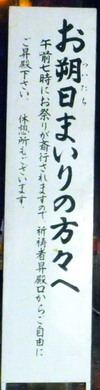 お朔日まいりの方々へ
ついたち
午前七時にお祭りが斎行されますので、祈祷者昇殿口からご自由に
ご昇殿下さい。　休憩所もございます。